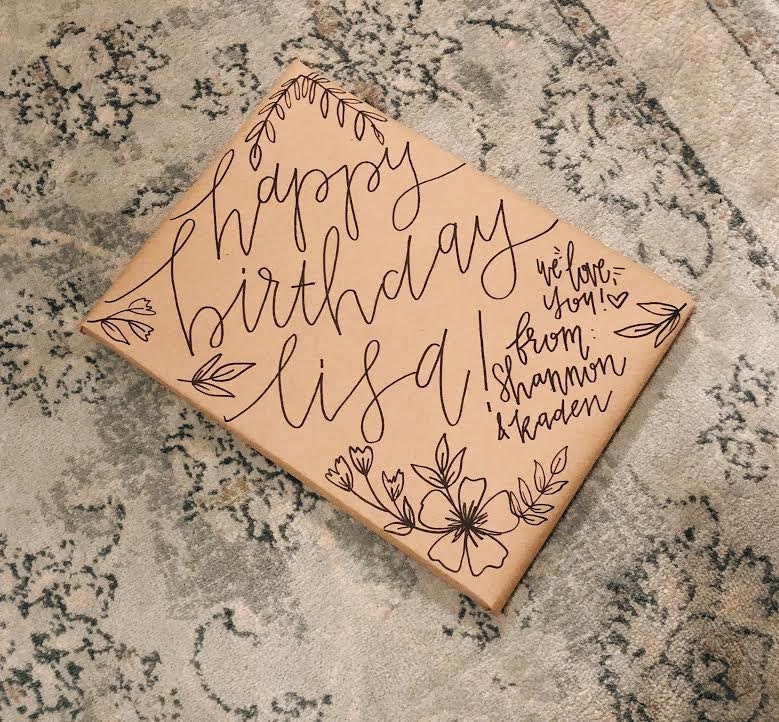 happy
birthday
lisa!
we love
you! ♡
from:
shannon
& kaden